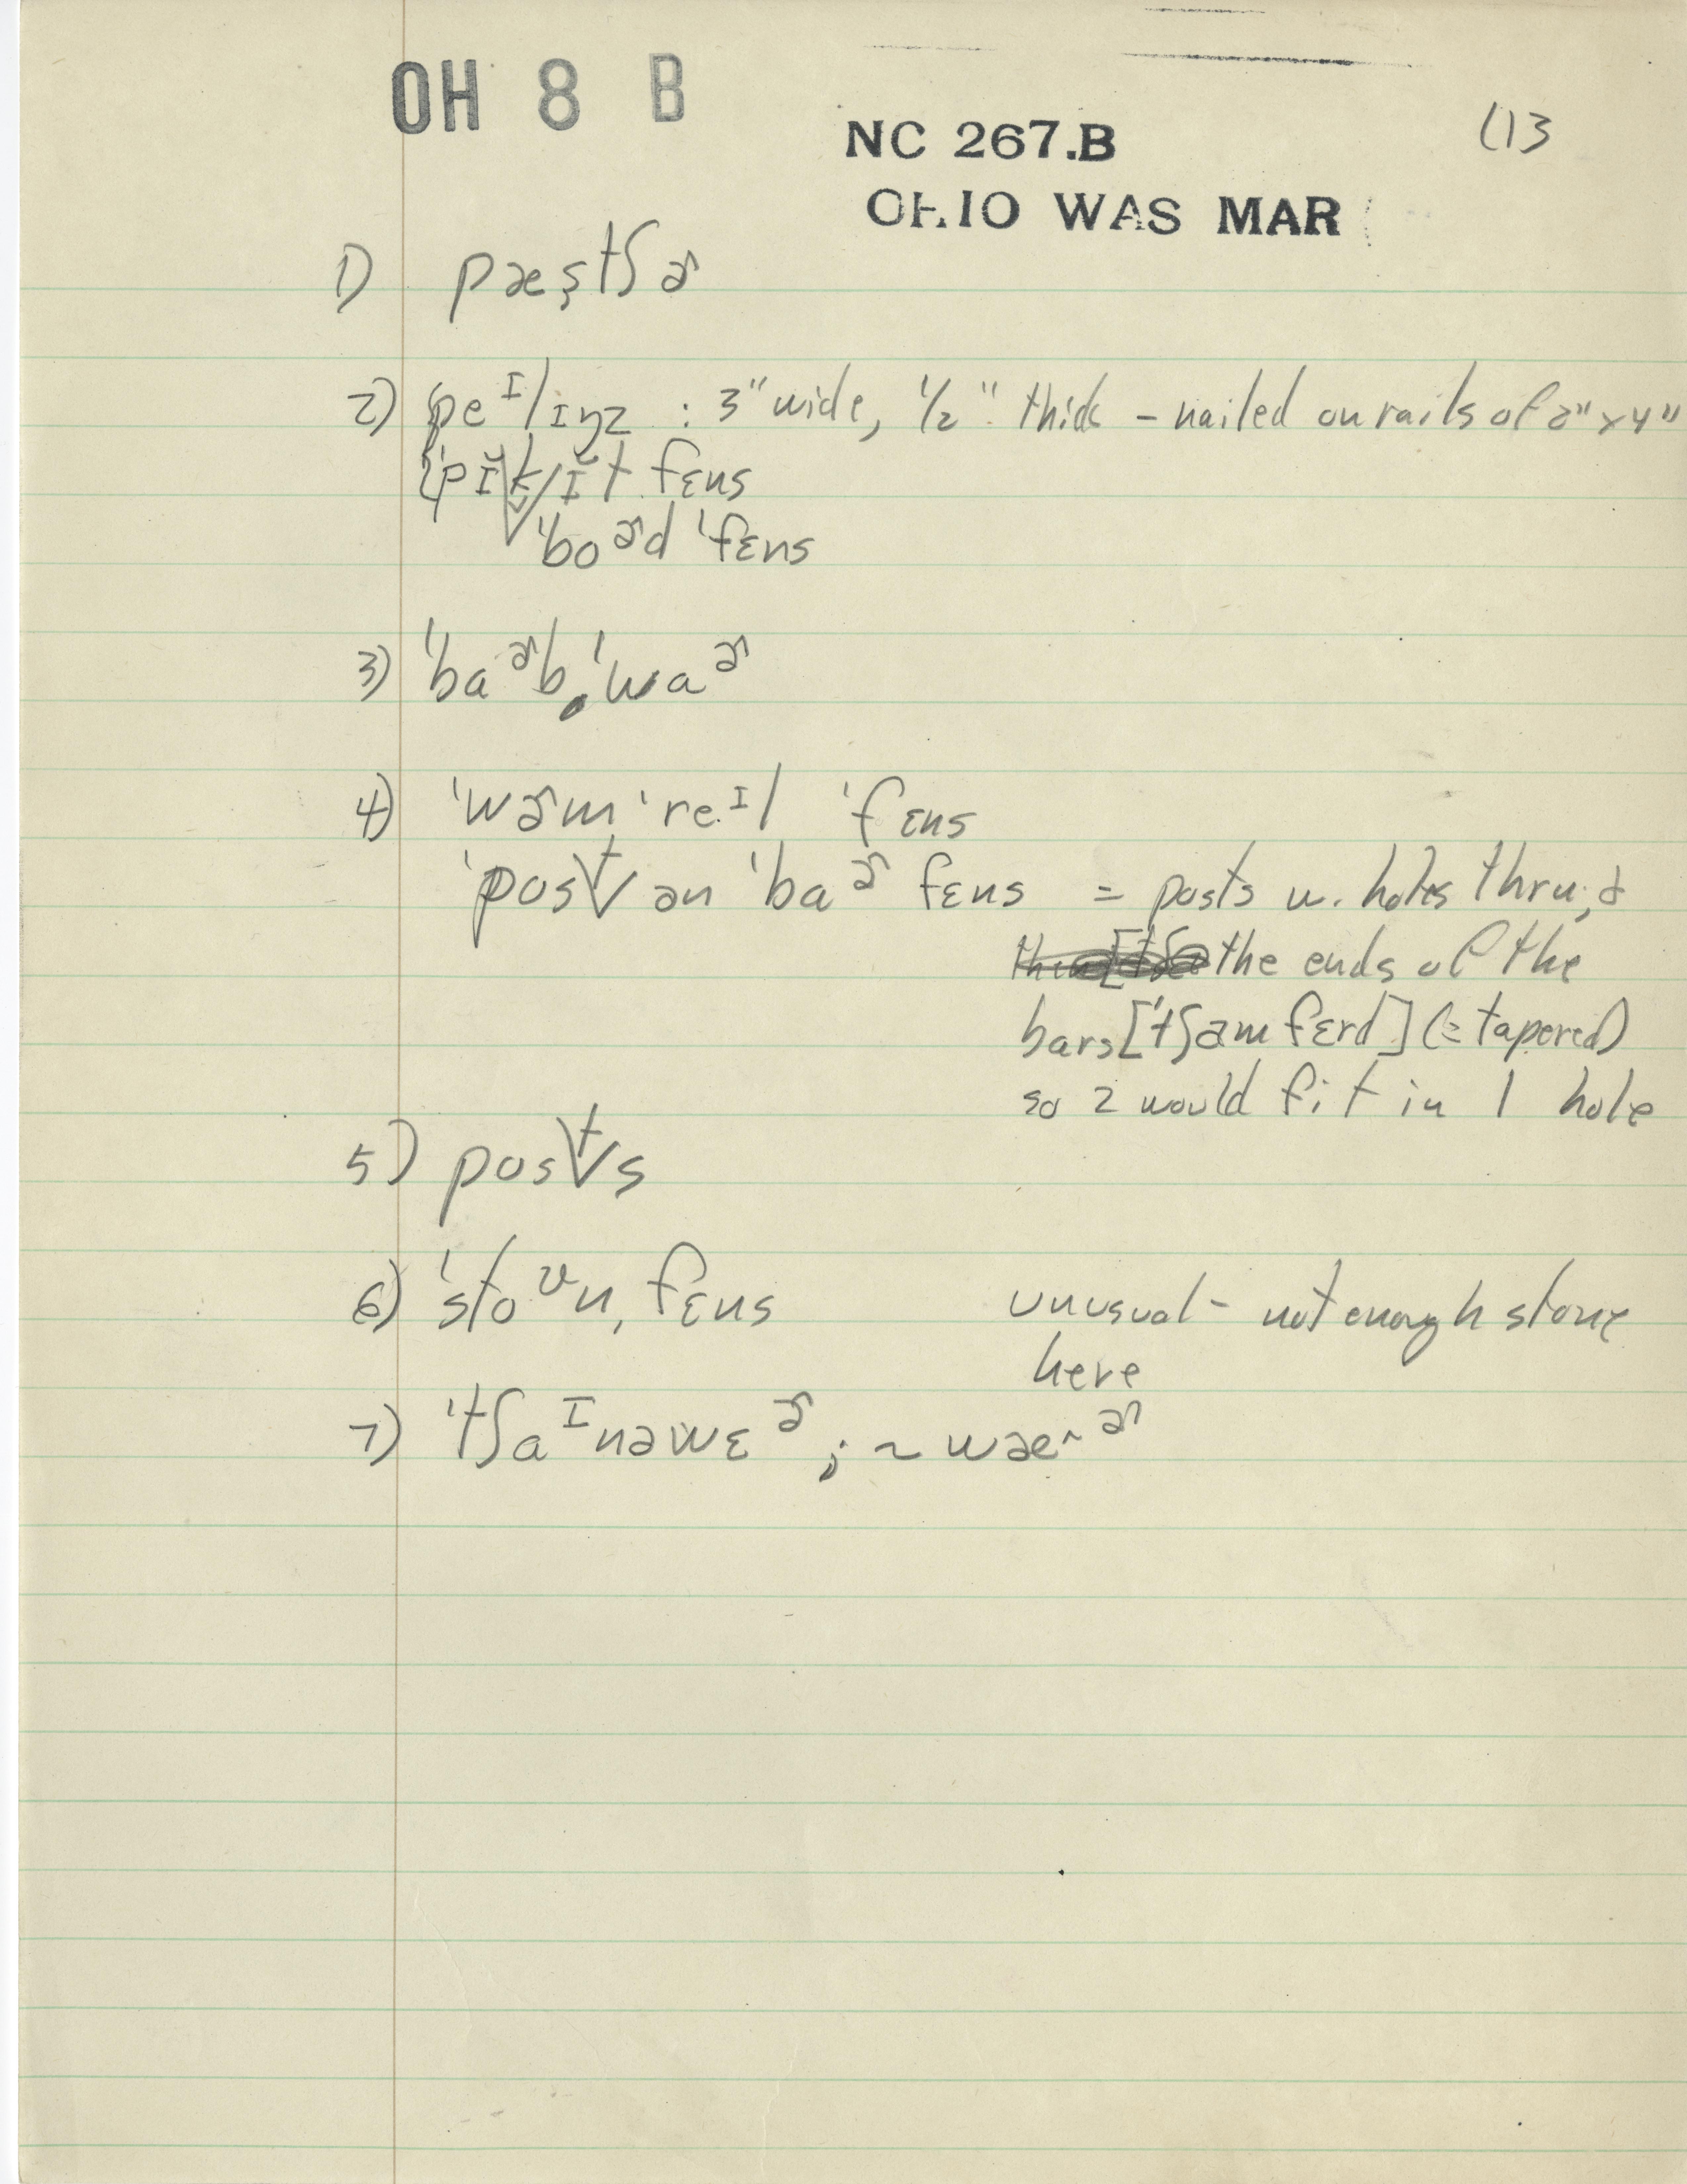 OH 8 B
NC 267.B
(13
OHIO WAS MAR
1) pæṣtʃɚ
2) peᴵlɪŋz : 3" wide, 1/2" thick - nailed on rails of 2" x 4"
'pɪ̆k̬ɪ̆t fɛns
'boɚd 'fɛns
3) 'baɚb 'waɚ
4) 'wɚm 'reᴵl 'fɛns
'post ən 'baɚ fɛns = posts w. holes thru, &
the ends of the
bars ['tʃamfɛrd] (= tapered)
so 2 would fit in 1 hole
5) posts
6) 'stoᶷn ˌfɛns unusual - not enough stone
here
7) 'tʃaᴵnəwɛɚ ; ~ wæ^ɚ